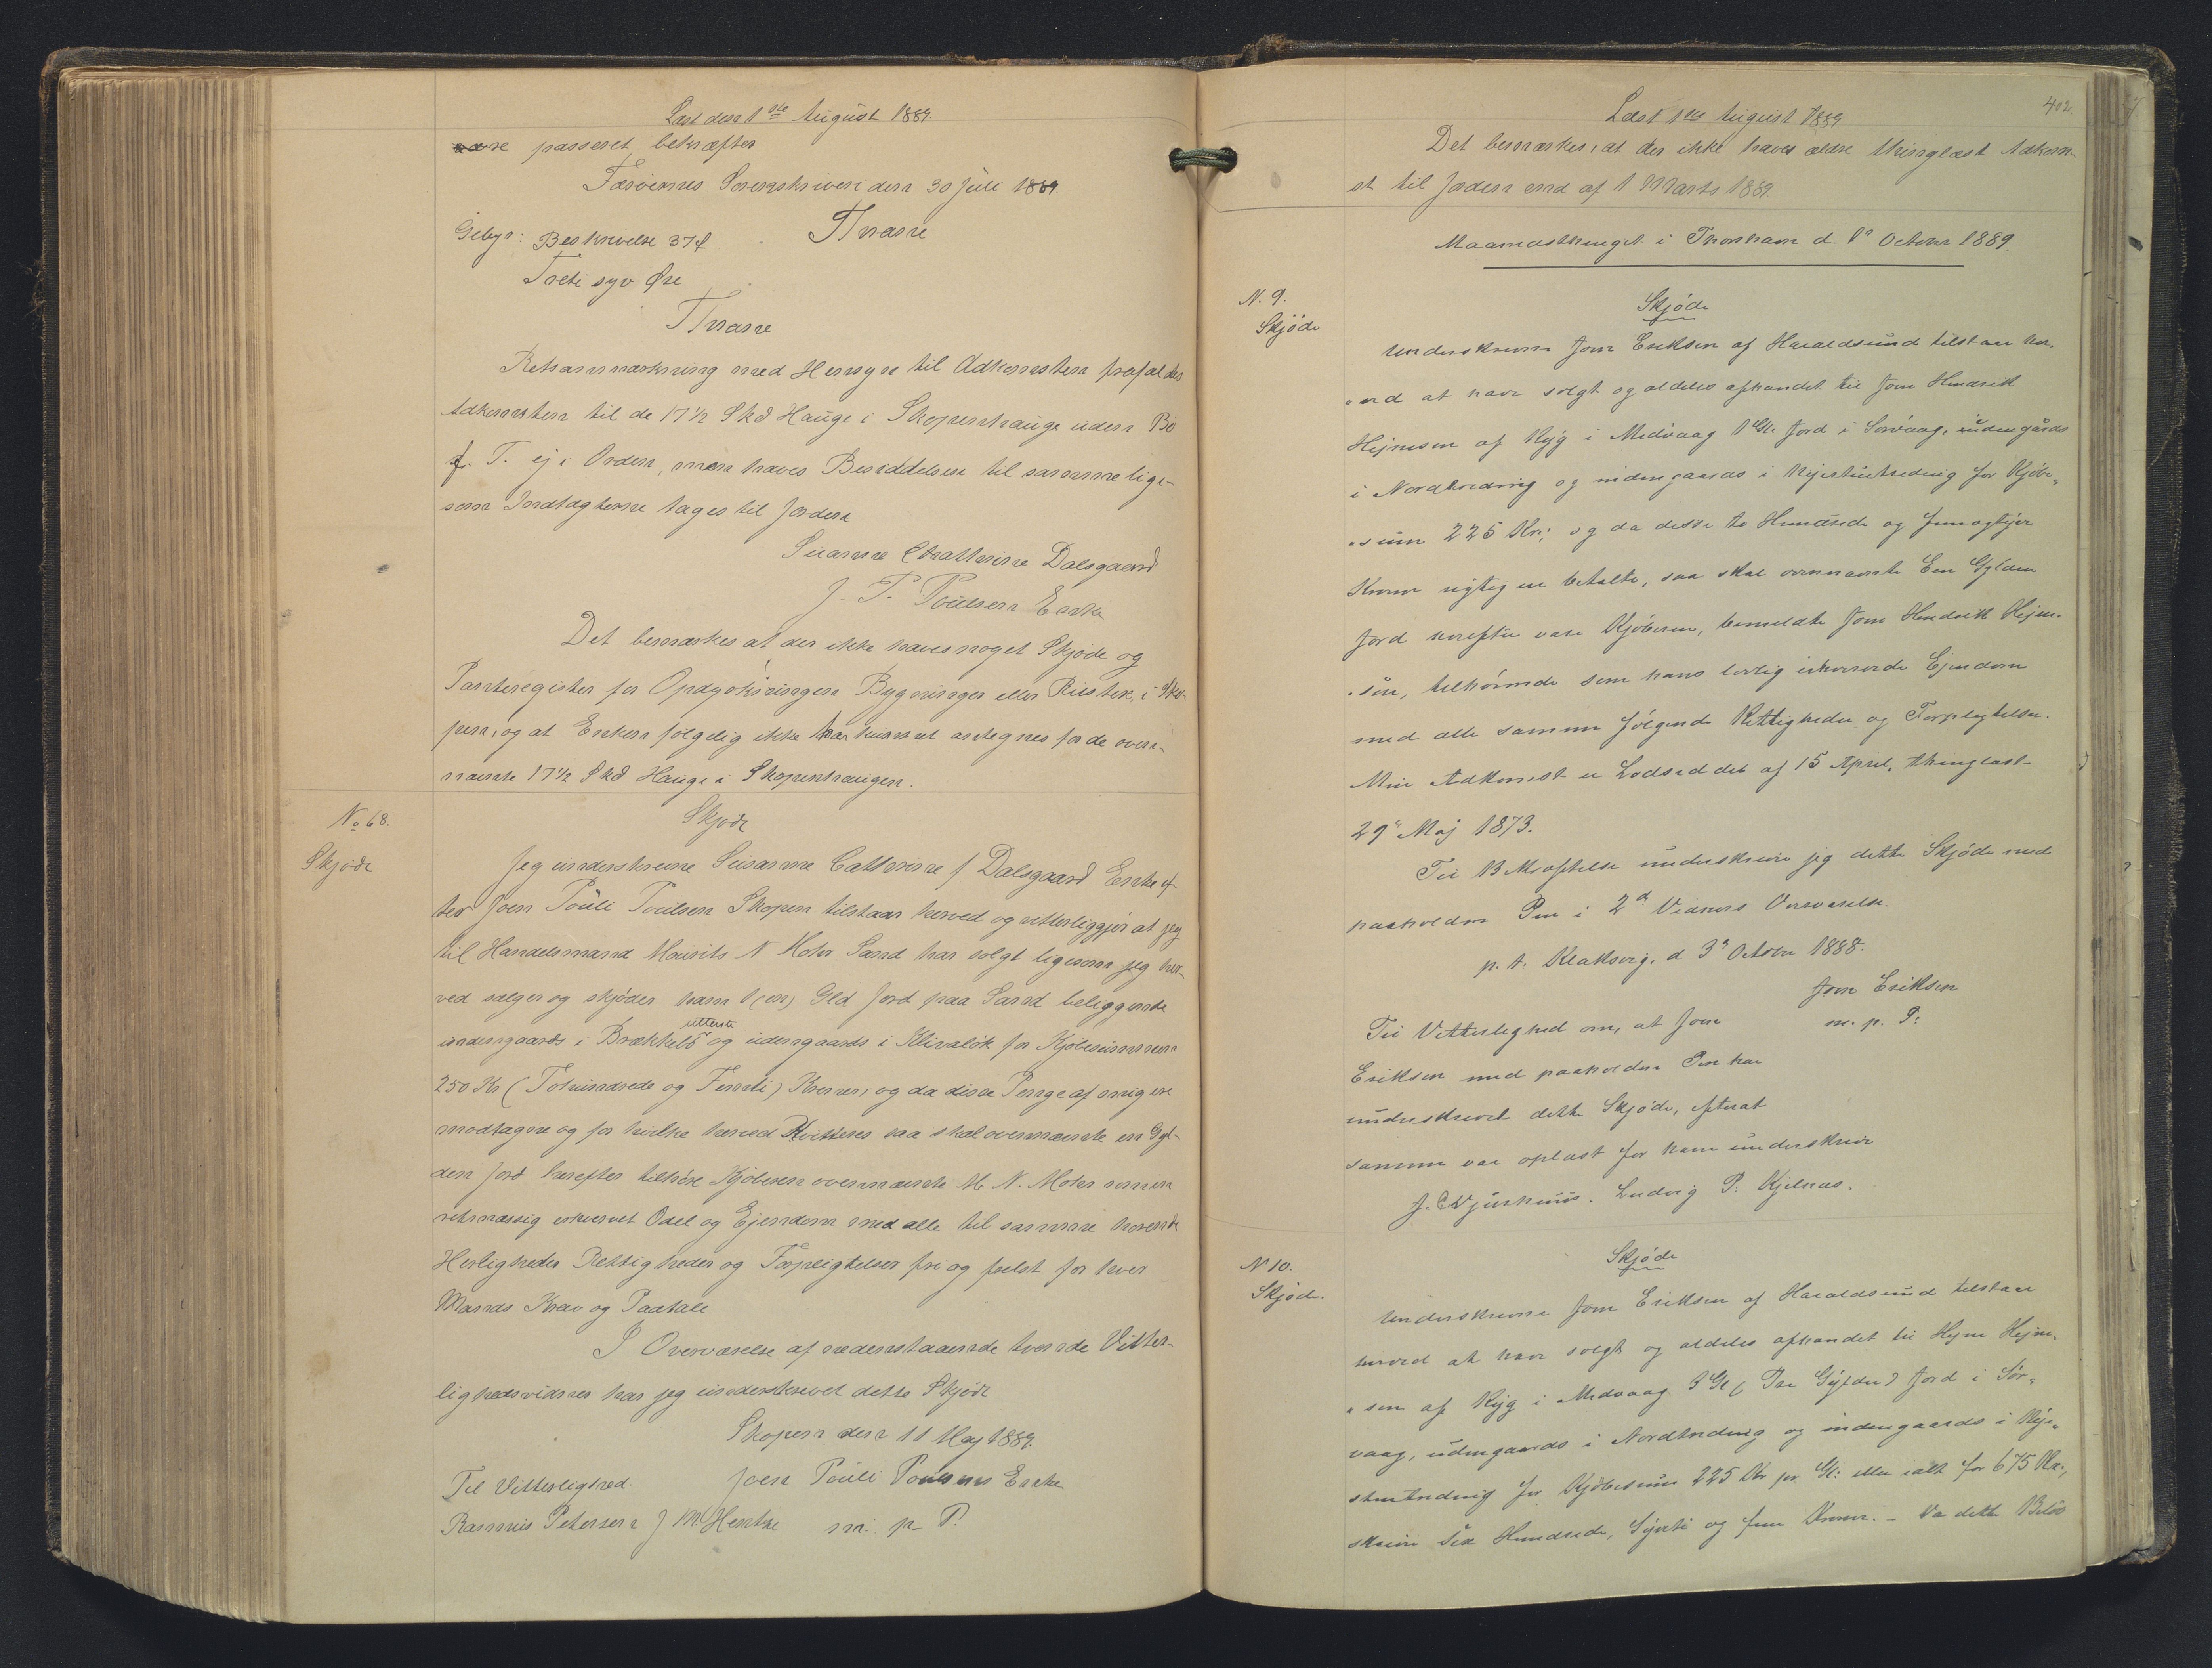 Læst den 1ste August 1889.
være passeret bekræftes
Færøernes Sorenskriveri den 30 Juli 1889.
Gebyr: Beskrivelse 37 f.
Treti syv Øre
Retsanmærkning med Hensyn til Adkomsten frafalder
Adkomsten til de 17½ Skd Hauge i Skopenhauge uden Bo
f. T. ej i Orden, men haves Besiddelsen til samme lige-
som Indtægterne tages til Jorden
Susanne Cathrine Dalsgaard
J. P. Poulsen Enke
Det bemærkes at der ikke haves noget Skjøde og
Panteregister for Opdyrkningen Bygninger eller Ristere i Sko-
pen, og at Enken følgelig ikke har kunnet antegnes for de oven-
nævnte 17½ Skd Hauge i Skopenhaugen.
No 68.
Skjøde
Skjøde
Jeg underskrevne Susanne Cathrine f Dalsgaard Enke ef-
ter Joen Pouli Poulsen Skopen tilstaar herved og vitterliggjør at jeg
til Handelsmand Mourits N Mohr Sand har solgt ligesom jeg her-
ved sælger og skjøder ham 1 (en) Gld Jord paa Sand beliggende
indengaards i Brækkelø utterste og udengaards i Klivaløk for Kjøbesummen
250 Kr (Tohundrede og Femti) Kroner, og da disse Penge af mig ere
modtagne og for hvilke herved Kvitteres saa skal ovennævnte en Gyl-
den Jord herefter tilhøre Kjøberen ovennævnte M N. Mohr som en
retmæssig erhvervet Odel og Ejendom med alle til samme hørende
Herligheder Rettigheder og Forpligtelser fri og frelst for hver
Mands Krav og Paatale
I Overværelse af nedenstaaende tvende Vitter-
lighedsvidner har jeg underskrevet dette Skjøde
Skopen den 11 Maj 1889.
Til Vitterlighed. Joen Pouli Poulsens Enke
Rasmus Petersen J M. Hentze m. p. P.
402.
Læst 1ste August 1889
Det bemærkes, at der ikke haves ældre thinglæst Adkom-
st til Jorden end af 1 Marts 1889
Maanedsthinget i Thorshavn d. 1ste October 1889.
N. 9.
Skjøde
Skjøde
Underskrevne Joen Eriksen af Haraldsund tilstaar her-
ved at have solgt og aldeles afhændet til Joen Hendrik
Hejnesen af Ryg i Midvaag 1 Gl. Jord i Sørvaag, udengaards
i Nordtredring og indengaards i Nyestutrednig for Kjøbe-
sum 225 Kr.; og da disse to Hundrede og fem og tyve
Kroner rigtig er betalte, saa skal ovennævnte Een Gylden
Jord herefter være Kjøberen, bemeldte Joen Hendrik Hejne-
sen, tilhørende som hans lovlig erhvervede Ejendom
med alle samme følgende Rettigheder og Forpligtelser.
Min Adkomst er Lodseddel af 15 April, thinglæst
29 Maj 1873.
Til Bekræftelse underskriver jeg dette Skjøde med
paaholden Pen i 2de Vidners Overværelse.
p. t. Klaksvig, d 3die October 1888.
Joen Eriksen
m. p. P:
Til Vitterlighed om, at Joen
Eriksen med paaholden Pen har
underskrevet dette Skjøde, efterat
samme var oplæst for ham underskrive
J. C Djurhuus. Ludvig P: Kjelnæs.
N 10.
Skjøde.
Skjøde
Underskrevne Joen Eriksen af Haraldsund tilstaar
herved at have solgt og aldeles afhændet til Hejne Hejne-
sen af Ryg i Midvaag 3 Gl. (Tre Gylden) Jord i Sør-
vaag, udengaards i Nordtredring og indengaards i Nye-
stutredning for Kjøbesum 225 Kr pr. Gl: eller ialt for 675 Kr.,
skriver Sex Hundrede, Syvti og fem Kroner. – Da dette Beløb